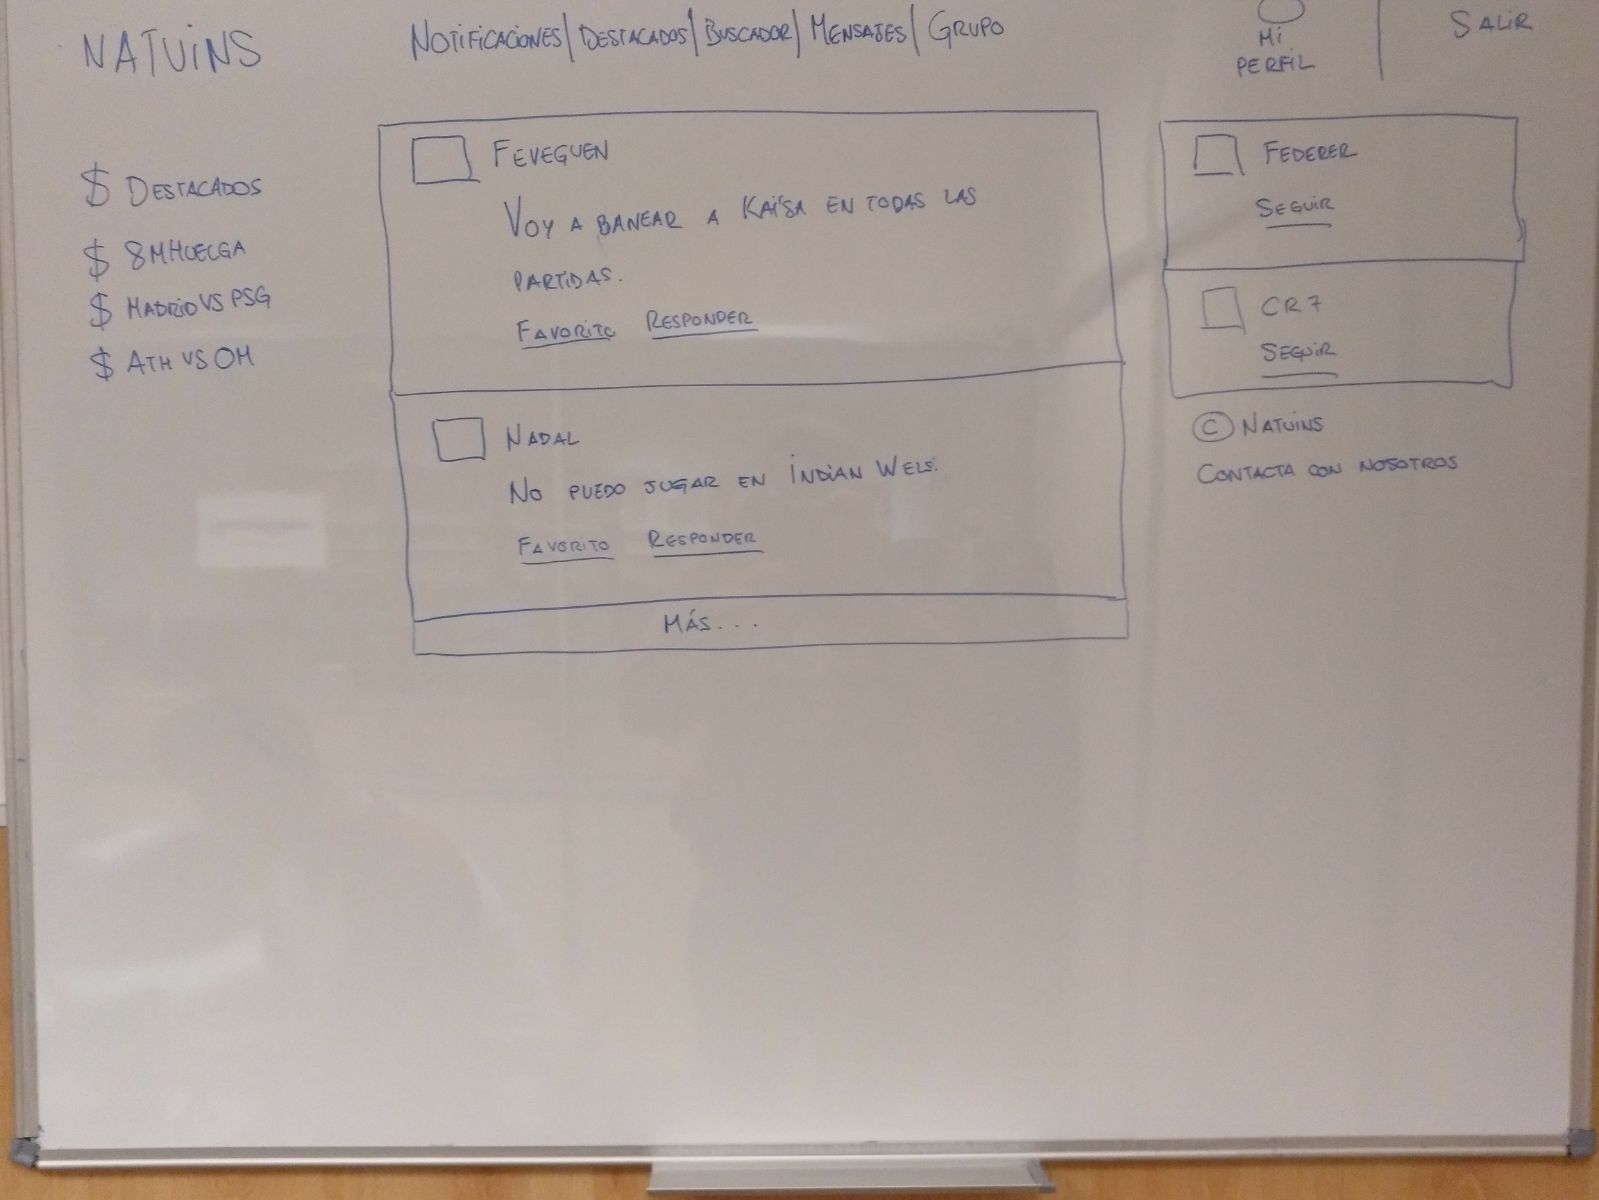 NATUINS
NOTIFICACIONES | DESTACADOS | BUSCADOR | MENSAJES | GRUPO
MI
PERFIL
SALIR
$ DESTACADOS
$ 8MHUELGA
$ MADRID VS PSG
$ ATH VS OM
FEVEGUEN
VOY A BANEAR A KAI'SA EN TODAS LAS
PARTIDAS.
FAVORITO RESPONDER
NADAL
NO PUEDO JUGAR EN INDIAN WELS.
FAVORITO RESPONDER
MÁS...
FEDERER
SEGUIR
CR7
SEGUIR
© NATUINS
CONTACTA CON NOSOTROS